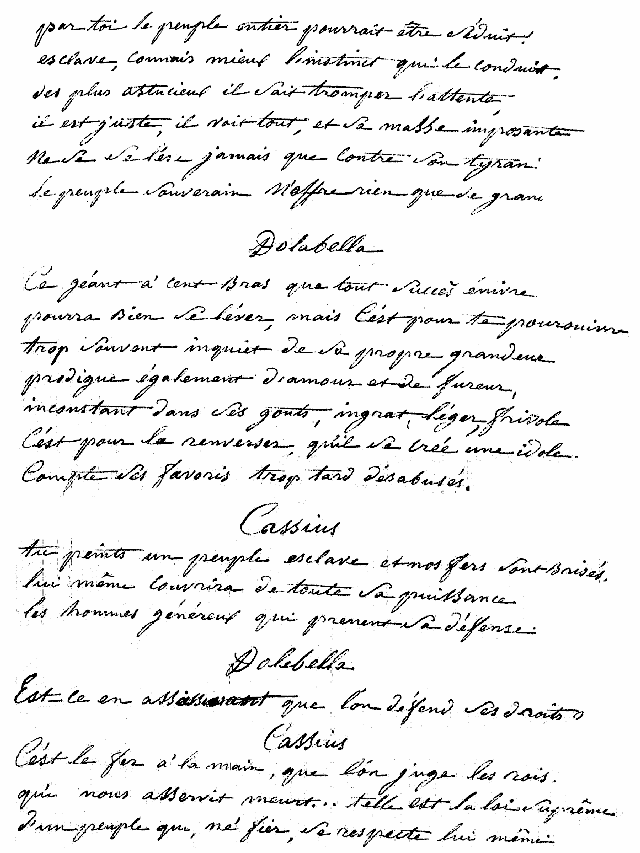 par toi le peuple entier pourrait être séduit!
esclave, connais mieux l'instinct qui le conduit,
des plus astucieux il sait tromper l'attente,
il est juste, il voit tout, et sa masse imposante
ne se lève jamais que contre son tyran:
le peuple souverain n'offre rien que de grand
Dolabella
Ce géant à cent Bras que tout succès énivre
pourra Bien se léver, mais C'est pour te poursuivre
trop souvent inquiet de sa propre grandeur
prodigue également d'amour et de fureur,
inconstant dans ses gouts, ingrat, léger frivole
C'est pour la renverser, qu'il se crée une idole.
Compte ses favoris trop tard désabusés.
Cassius
tu peints un peuple esclave et nos fers sont Brisés,
lui même couvrira de toute sa puissance
les hommes généreux qui prenent sa défense.
Dolabella
Est-ce en assassinant que l'on défend ses droits
Cassius
C'est le fer à la main, que l'on juge les rois.
qui nous asservit meurt... telle est la loi suprême
d'un peuple qui, né fier, se respecte lui même